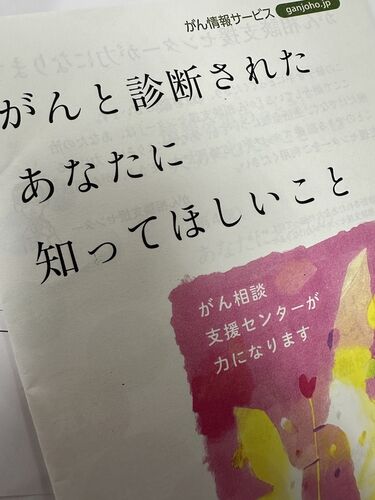 がん情報サービス ganjoho.jp
がんと診断された
あなたに
知ってほしいこと
がん相談
支援センターが
力になります